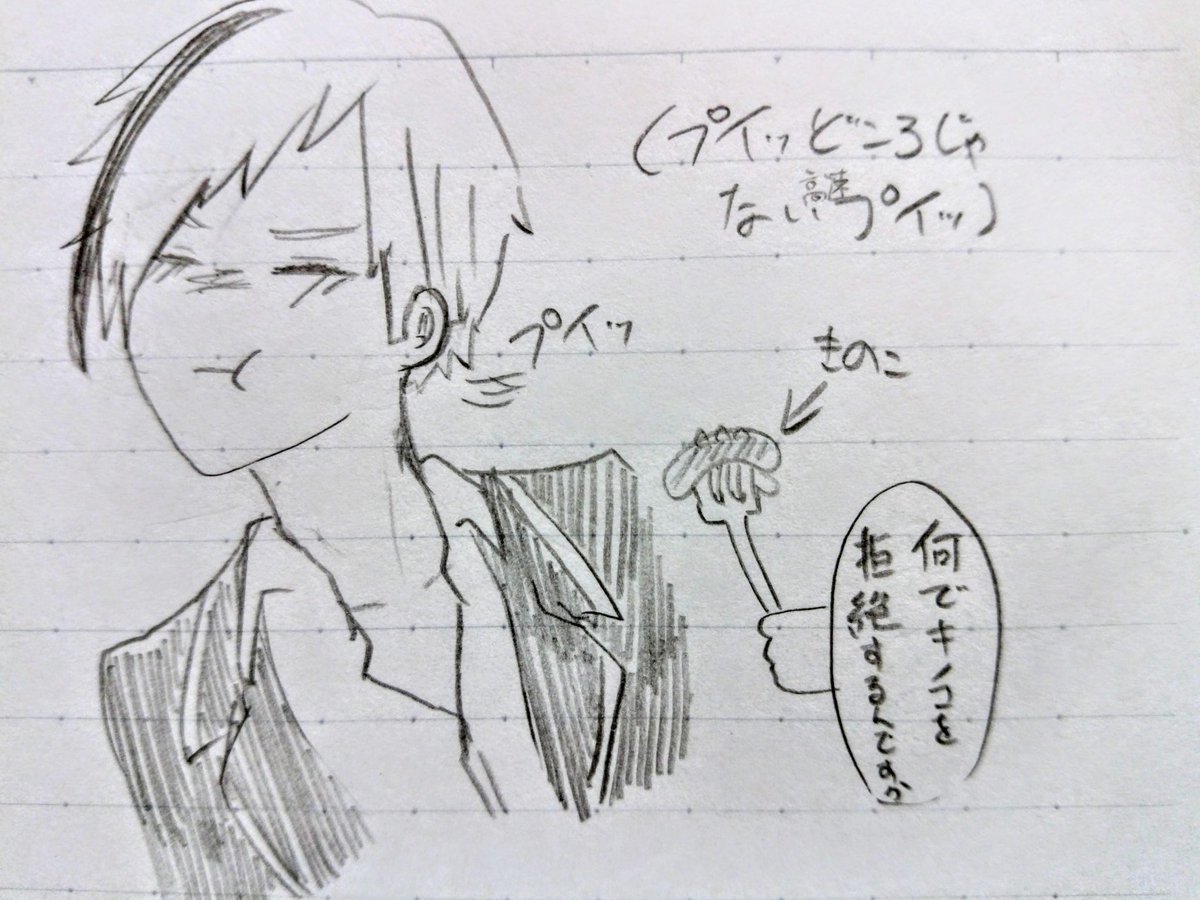 (プイッどころじゃ
ない高速プイッ)
プイッ
きのこ
何でキノコを
拒絶するんですか